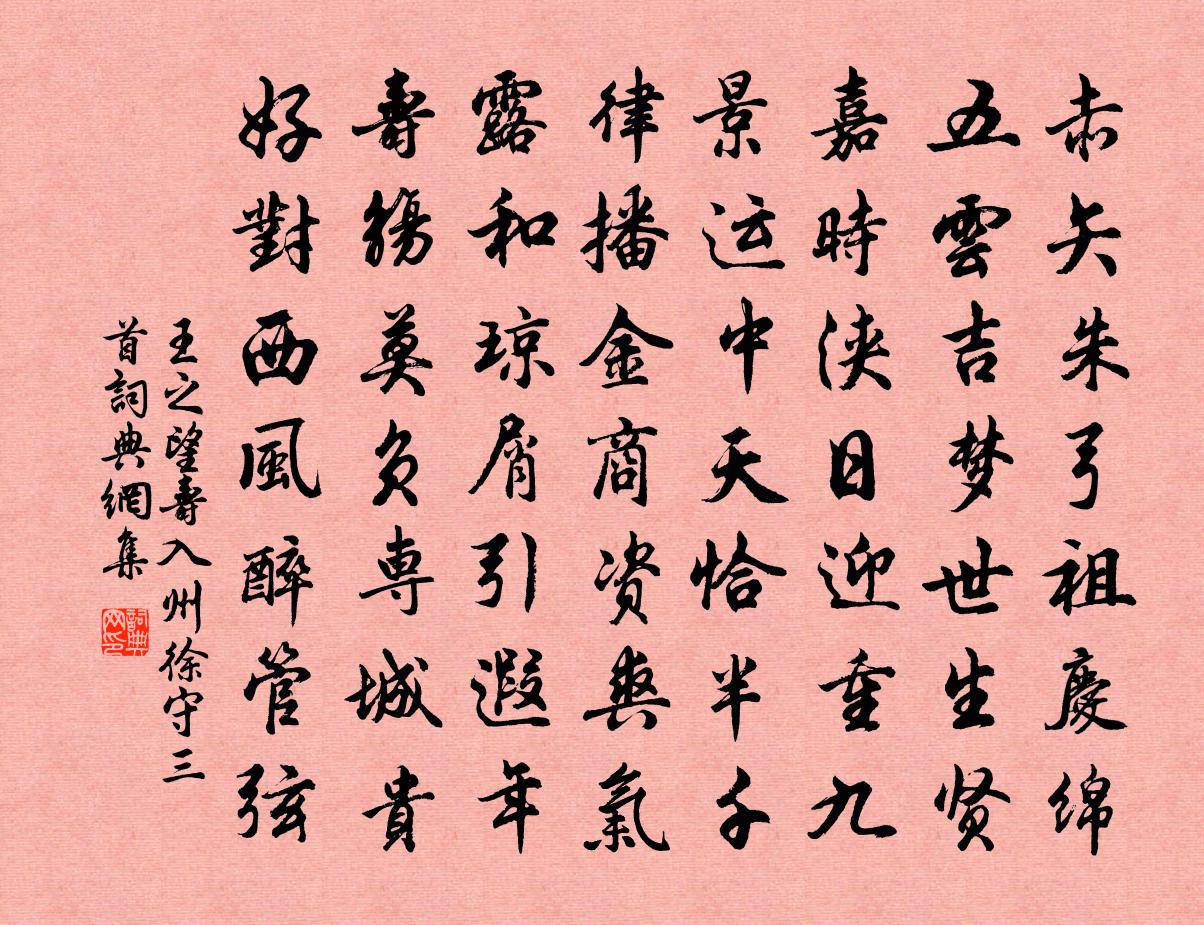 赤矢朱弓祖慶绵
五雲吉梦世生贤
嘉時浃日迎重九
景运中天恰半千
律播金商资爽氣
露和琼屑引遐年
壽觞莫负専城貴
好對西風醉管弦
王之望壽入州徐守三
首詞典網集
詞典
网印